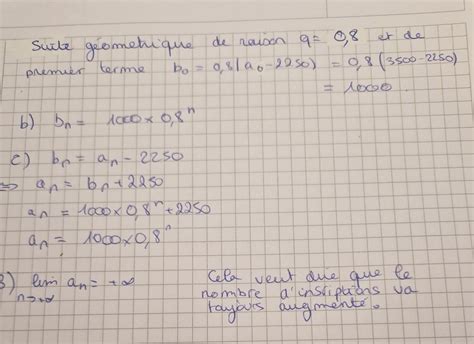 Suite géometrique de raison q = 0,8 et de
premier terme b₀ = 0,8(a₀ - 2250) = 0,8(3500 - 2250)
= 1000
b) bₙ = 1000 × 0,8ⁿ
c) bₙ = aₙ - 2250
⇒ aₙ = bₙ + 2250
aₙ = 1000 × 0,8ⁿ + 2250
aₙ = 1000 × 0,8ⁿ
3) lim aₙ = +∞
n→+∞
Cela veut dire que le
nombre d'inscriptions va
toujours augmenté.